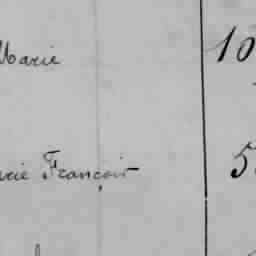 Marie 10
rie François 5